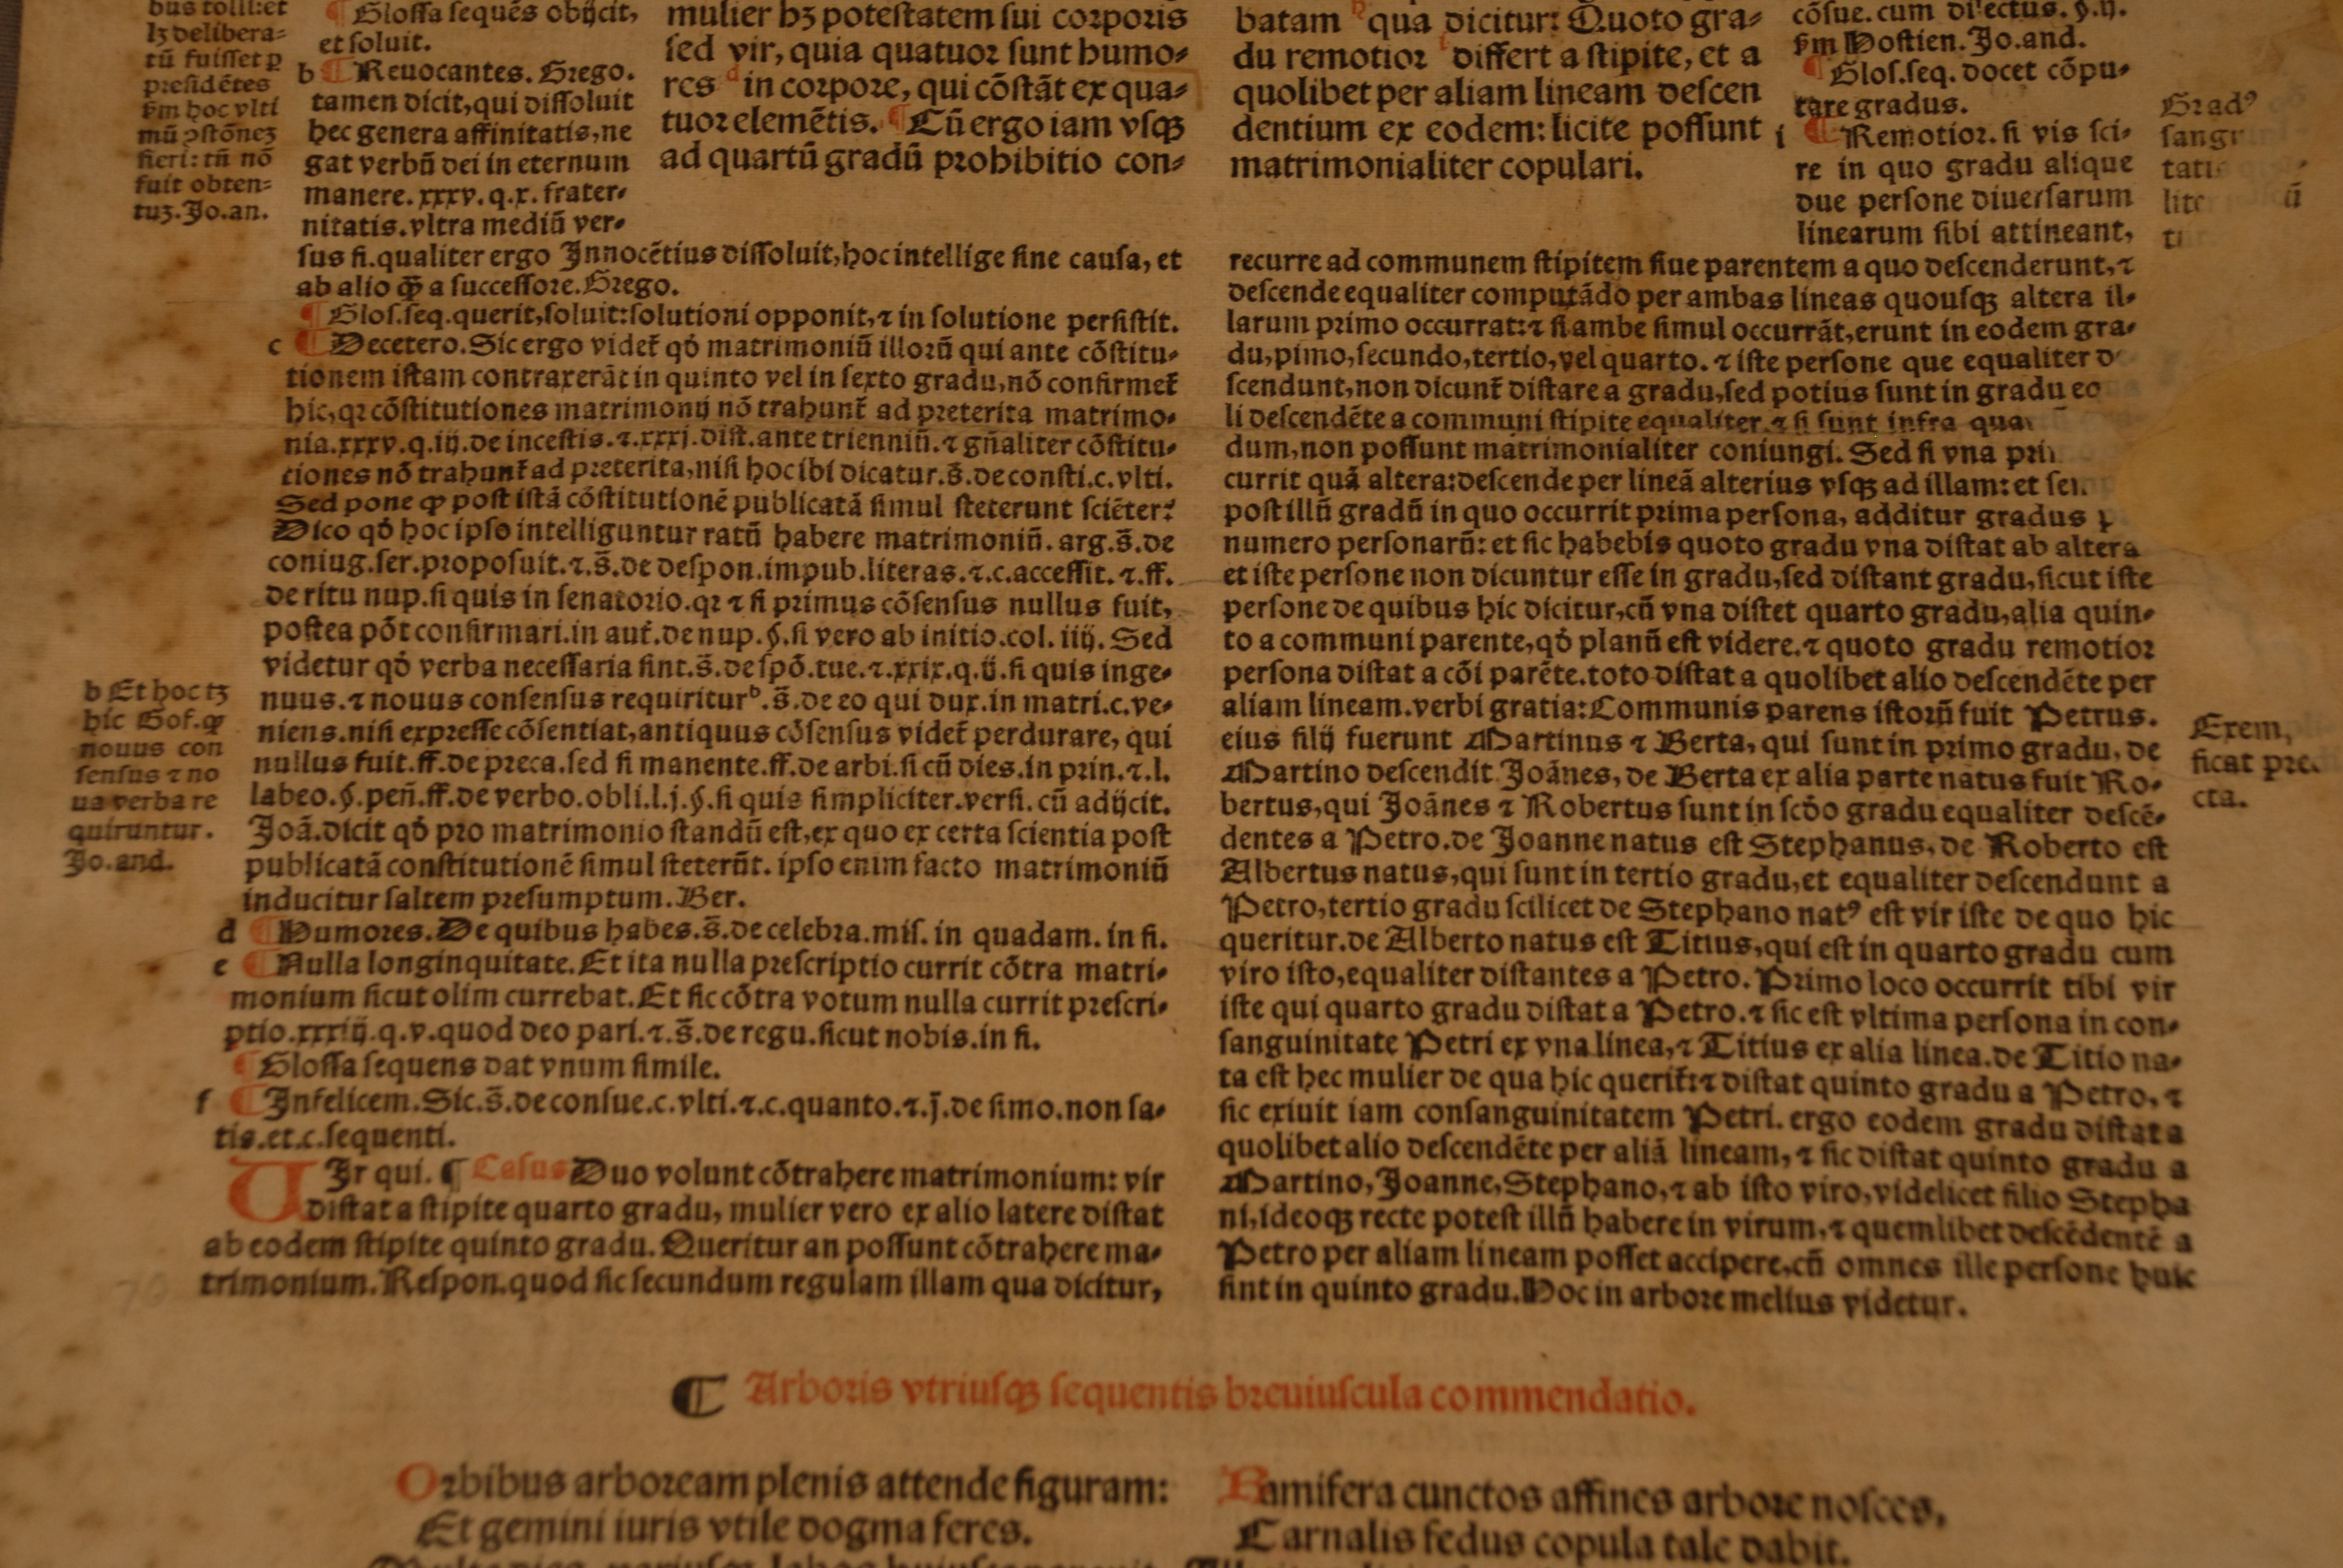 bus tolli:et
lꝫ delibera⸗
tū fuisset ꝑ
presidētes
hoc vlti
mū ꝯstōneꝫ
fieri: tñ nō
fuit obten⸗
tuꝫ. Jo. an.
¶ Glossa sequēs obijcit,
et soluit.
b ¶ Reuocantes. Grego.
tamen dicit, qui dissoluit
hec genera affinitatis, ne
gat verbū dei in eternum
manere. xxxv. q. x. frater⸗
nitatis. vltra mediū ver⸗
sus fi. qualiter ergo Innocētius dissoluit, hoc intellige sine causa, et
ab alio ꝙ̄ a successore. Grego.
mulier hꝫ potestatem sui corporis
sed vir, quia quatuor sunt humo⸗
res d in corpore, qui cōstāt ex qua⸗
tuor elemētis. ¶ Cū ergo iam vsqꝫ
ad quartū gradū prohibitio con⸗
¶ Glos. seq. querit, soluit: solutioni opponit, ⁊ in solutione persistit.
c ¶ Decetero. Sic ergo videt̄ qȯ matrimoniū illorū qui ante cōstitu⸗
tionem istam contraxerāt in quinto vel in sexto gradu, nō confirmet̄
hic, qꝛ cōstitutiones matrimonij nō trahunt̄ ad preterita matrimo⸗
nia. xxxv. q. iij. de incestis. ⁊. xxxj. dist. ante trienniū. ⁊ gn̄aliter cōstitu⸗
tiones nō trahunt̄ ad preterita, nisi hoc ibi dicatur. s̄. de consti. c. vlti.
Sed pone ꝙ post istā cōstitutionē publicatā simul steterunt sciēter?
Dico qȯ hoc ipso intelliguntur ratū habere matrimoniū. arg. s̄. de
coniug. ser. proposuit. ⁊. s̄. de despon. impub. literas. ⁊. c. accessit. ⁊. ff.
de ritu nup. si quis in senatorio. qꝛ ⁊ si primus cōsensus nullus fuit,
postea pōt confirmari. in aut̄. de nup. §. si vero ab initio. col. iiij. Sed
videtur qȯ verba necessaria sint. s̄. de spō. tue. ⁊. xxix. q. ij. si quis inge⸗
nuus. ⁊ nouus consensus requiritur b. s̄. de eo qui dux. in matri. c. ve⸗
niens. nisi expresse cōsentiat, antiquus cōsensus videt̄ perdurare, qui
nullus fuit. ff. de preca. sed si manente. ff. de arbi. si cū dies. in prin. ⁊. l.
labeo. §. peñ. ff. de verbo. obli. l. j. §. si quis simpliciter. versi. cū adijcit.
Joā. dicit qȯ pro matrimonio standū est, ex quo ex certa scientia post
publicatā constitutionē simul steterūt. ipso enim facto matrimoniū
inducitur saltem presumptum. Ber.
b Et hoc tꝫ
hic Gof. ꝙ
nouus con
sensus ⁊ no
ua verba re
quiruntur.
Jo. and.
d ¶ Humores. De quibus habes. s̄. de celebra. mis. in quadam. in fi.
e ¶ Nulla longinquitate. Et ita nulla prescriptio currit cōtra matri⸗
monium sicut olim currebat. Et sic cōtra votum nulla currit prescri⸗
ptio. xxxiij. q. v. quod deo pari. ⁊. s̄. de regu. sicut nobis. in fi.
¶ Glossa sequens dat vnum simile.
f ¶ Infelicem. Sic. s̄. de consue. c. vlti. ⁊. c. quanto. ⁊. j̄. de simo. non sa⸗
tis. et. c. sequenti.
UIr qui. ¶ Casus Duo volunt cōtrahere matrimonium: vir
distat a stipite quarto gradu, mulier vero ex alio latere distat
ab eodem stipite quinto gradu. Queritur an possunt cōtrahere ma⸗
trimonium. Respon. quod sic secundum regulam illam qua dicitur,
batam h qua dicitur: Quoto gra⸗
du remotior i differt a stipite, et a
quolibet per aliam lineam descen
dentium ex eodem: licite possunt
matrimonialiter copulari.
cōsue. cum dilectus. §. ij.
Hostien. Jo. and.
¶ Glos. seq. docet cōpu⸗
tare gradus.
i ¶ Remotior. si vis sci⸗
re in quo gradu alique
due persone diuersarum
linearum sibi attineant,
recurre ad communem stipitem siue parentem a quo descenderunt, ⁊
descende equaliter computādo per ambas lineas quousqꝫ altera il⸗
larum primo occurrat: ⁊ si ambe simul occurrāt, erunt in eodem gra⸗
du, pimo, secundo, tertio, vel quarto. ⁊ iste persone que equaliter
scendunt, non dicunt̄ distare a gradu, sed potius sunt in gradu
li descendēte a communi stipite equaliter. ⁊ si sunt infra
dum, non possunt matrimonialiter coniungi. Sed si vna
currit quā altera: descende per lineā alterius vsqꝫ ad illam: et
post illū gradū in quo occurrit prima persona, additur gradus
numero personarū: et sic habebis quoto gradu vna distat ab altera
et iste persone non dicuntur esse in gradu, sed distant gradu, sicut iste
persone de quibus hic dicitur, cū vna distet quarto gradu, alia quin⸗
to a communi parente, qȯ planū est videre. ⁊ quoto gradu remotior
persona distat a cōi parēte. toto distat a quolibet alio descendēte per
aliam lineam. verbi gratia: Communis parens istorū fuit Petrus.
eius filij fuerunt Martinus ⁊ Berta, qui sunt in primo gradu, de
Martino descendit Joānes, de Berta ex alia parte natus fuit Ro⸗
bertus, qui Joānes ⁊ Robertus sunt in scȯo gradu equaliter descē⸗
dentes a Petro. de Joanne natus est Stephanus, de Roberto est
Albertus natus, qui sunt in tertio gradu, et equaliter descendunt a
Petro, tertio gradu scilicet de Stephano natꝰ est vir iste de quo hic
queritur. de Alberto natus est Titius, qui est in quarto gradu cum
viro isto, equaliter distantes a Petro. Primo loco occurrit tibi vir
iste qui quarto gradu distat a Petro. ⁊ sic est vltima persona in con⸗
sanguinitate Petri ex vna linea, ⁊ Titius ex alia linea. de Titio na⸗
ta est hec mulier de qua hic querit̄: ⁊ distat quinto gradu a Petro, ⁊
sic exiuit iam consanguinitatem Petri. ergo eodem gradu distat a
quolibet alio descendēte per aliā lineam, ⁊ sic distat quinto gradu a
Martino, Joanne, Stephano, ⁊ ab isto viro, videlicet filio Stepha
ni, ideoqꝫ recte potest illū habere in virum, ⁊ quemlibet descēdentē a
Petro per aliam lineam posset accipere, cū omnes ille persone huic
sint in quinto gradu. Hoc in arbore melius videtur.
Gradꝰ
Exem
ficat
cta.
¶ Arboris vtriusqꝫ sequentis breuiuscula commendatio.
Orbibus arboream plenis attende figuram:
Et gemini iuris vtile dogma feres.
Ramifera cunctos affines arbore nosces,
Carnalis fedus copula tale dabit.